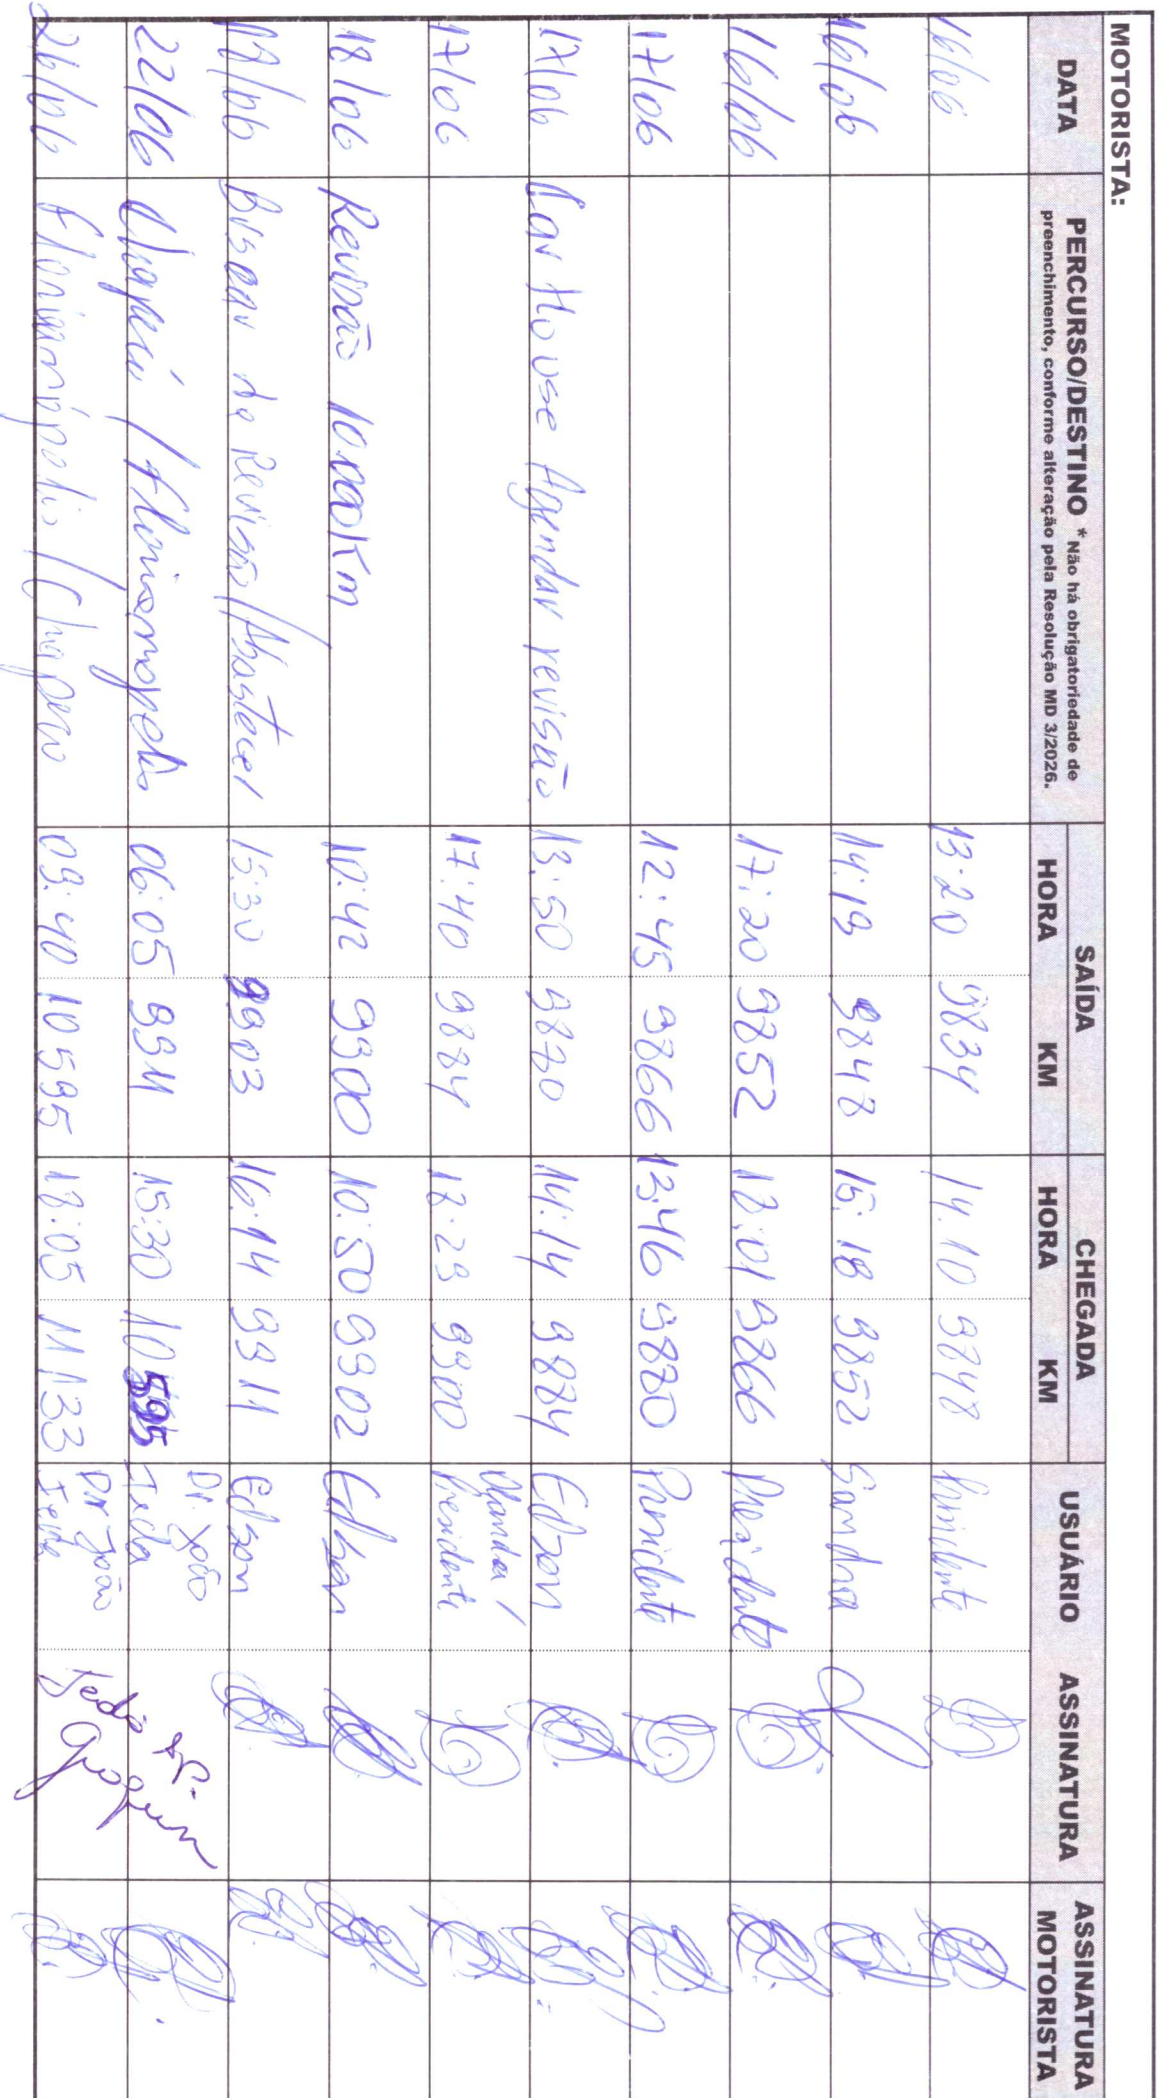 MOTORISTA:
DATA PERCURSO/DESTINO * Não há obrigatoriedade de preenchimento, conforme alteração pela Resolução MD 3/2026. SAÍDA CHEGADA USUÁRIO ASSINATURA ASSINATURA MOTORISTA
HORA KM HORA KM
16/06 13:20 9834 14:10 9848 Presidente
16/06 14:19 9848 15:18 9852 Sandra
16/06 17:20 9852 18:01 9866 Presidente
17/06 12:45 9866 13:46 9880 Presidente
17/06 Car House Agendar revisão 13:50 9880 14:14 9884 Edson
17/06 17:40 9884 18:29 9900 Presidente
18/06 Revisão 10.000Km 10:42 9900 10:50 9902 Edson
18/06 Buscar da Revisão/Abastecer 15:30 9903 16:14 9911 Edson
22/06 Chapecó / Florianópolis 06:05 9911 15:30 10595 Dr. João Ieda
26/06 Florianópolis / Chapecó 09:40 10595 18:05 11133 Dr João Ieda